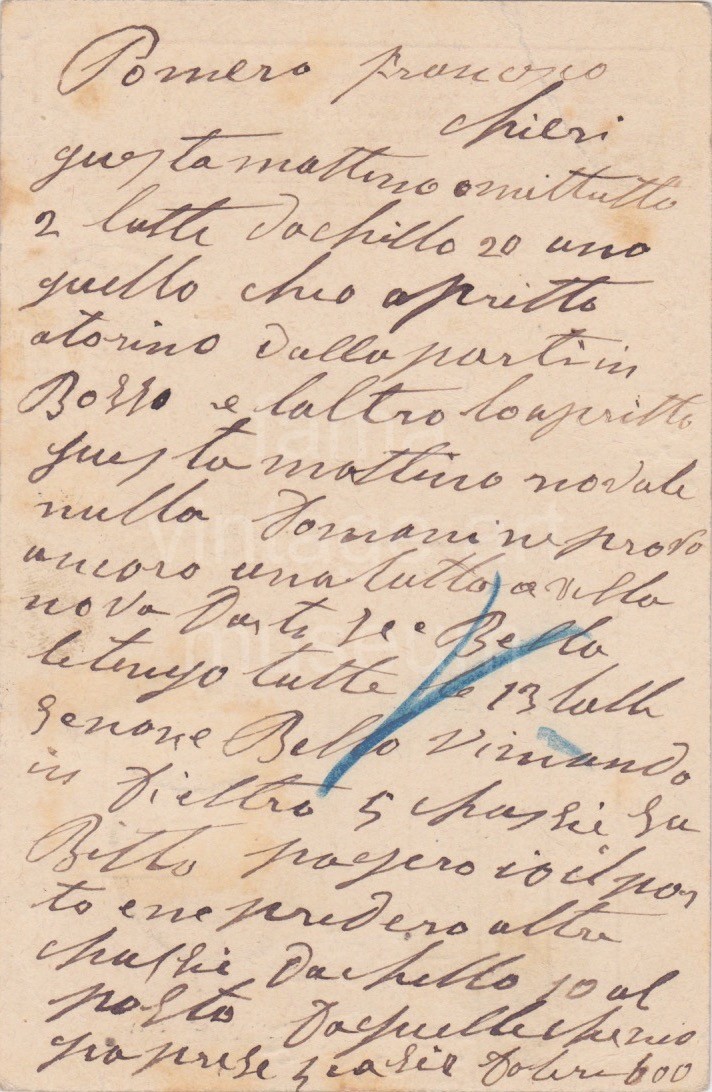 Pomero Francesco
Chieri
questa mattina omittutto
2 latte dachillo 20 una
quella cheo apritto
atorino dalla parti in
e laltro loapritto
questa mattina novale
nulla Domani ne provo
ancora una latta avilla
nova Dasti See Bella
letengo tutte le 13 latte
Senone Bello vimando
in Dieltro 5 chassie Su
Bitto pagero io il por
to e ne predero altre
chassie dachello 10 al
posto Daquelle cheneo
gia prese